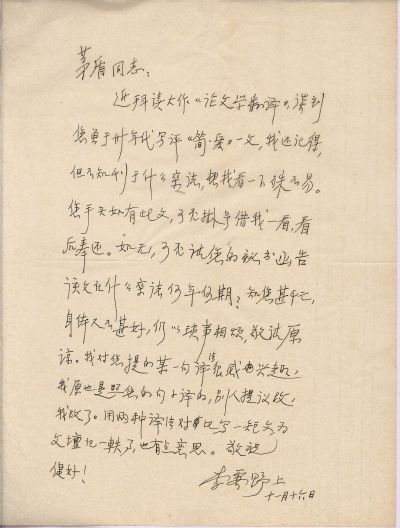 茅盾同志：
近拜读大作《论文学翻译》，读到
您曾于卅年代写评《简·爱》一文，我还记得，
但不知刊于什么杂志，想找看一下殊不易。
您手头如有此文，可否掛号借我一看，看
后奉还。如无，可否试您的秘书函告
该文在什么杂志何年何期？知您甚忙，
身体又不甚好，仍以琐事相烦，敬请原
谅。我对您提的某一句译很感兴趣，
我原也是照您的句子译的，别人提议改，
我改了。用两种译法对比写一短文，为
文坛记一轶事，也有意思。敬祝
健好！
李霁野上
十一月十六日